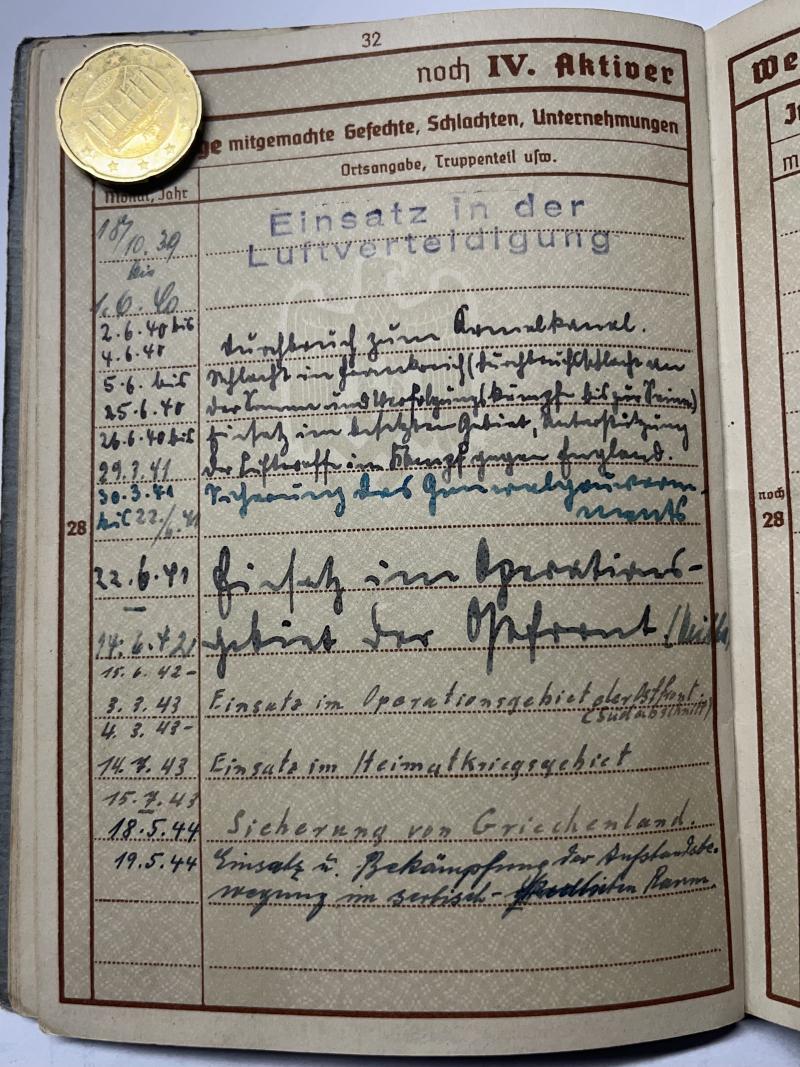 32
noch IV. Aktiver
ge mitgemachte Gefechte, Schlachten, Unternehmungen
Ortsangabe, Truppenteil usw.
Monat, Jahr
We
J
m
18/10.39
bis
1.6.40
Einsatz in der
Luftverteidigung
2.6.40 bis
4.6.40
Durchbruch zum Kanal.
5.6. bis
25.6.40
Schlacht in Frankreich (Durchbruchsschlacht an
der Somme und Verfolgungskämpfe bis zur Seine)
26.6.40 bis
29.3.41
Einsatz im besetzten Gebiet, Unterstützung
der Luftwaffe im Kampf gegen England.
30.3.41
bis 22./6.41
Sicherung des Generalgouverne-
ments
28
noch
28
22.6.41
14.6.42
Einsatz im Operations-
gebiet der Ostfront
15.6.42-
3.3.43
Einsatz im Operationsgebiet der Ostfront.
(Südabschnitt)
4.3.43-
14.7.43
Einsatz im Heimatkriegsgebiet
15.7.43
18.5.44
Sicherung von Griechenland.
19.5.44
Einsatz u. Bekämpfung der Aufstandsbe-
wegung im serbisch- Raum.